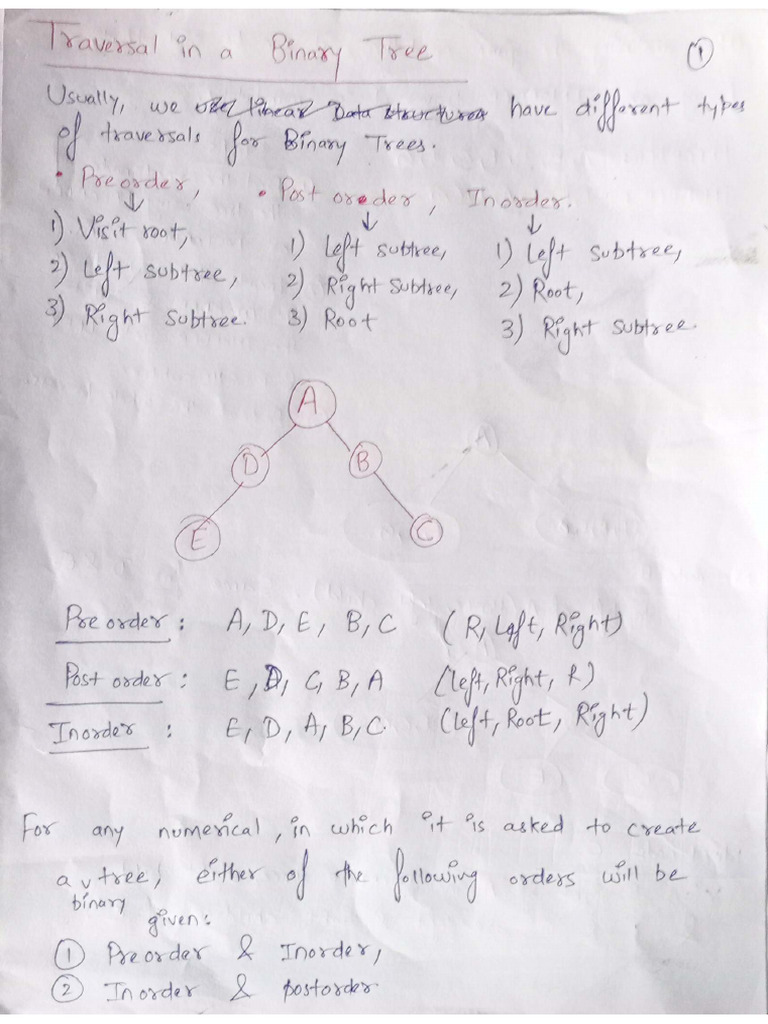 Traversal in a Binary Tree
①
Usually, we use linear Data structures have different types
of traversals for Binary Trees.
• Preorder, • Post order, Inorder.
↓ ↓ ↓
1) Visit root, 1) Left subtree, 1) Left subtree,
2) Left subtree, 2) Right subtree, 2) Root,
3) Right subtree. 3) Root 3) Right subtree.
A
D B
E C
Pre order : A, D, E, B, C (R, Left, Right)
Post order : E, D, C, B, A (left, Right, R)
Inorder : E, D, A, B, C. (left, Root, Right)
For any numerical, in which it is asked to create
a binary tree, either of the following orders will be
given:
① Preorder & Inorder,
② Inorder & postorder.